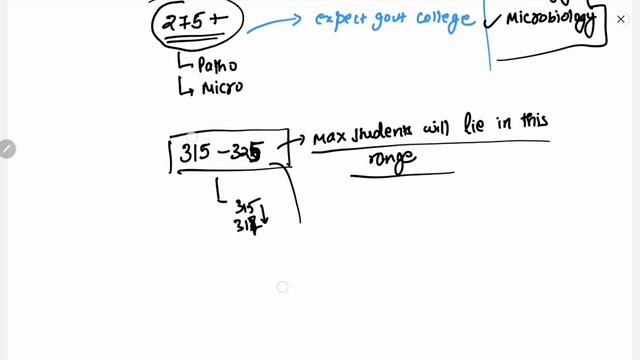 275+
expect govt college
Microbiology
Patho
Micro
315-325
max students will lie in this
range
315